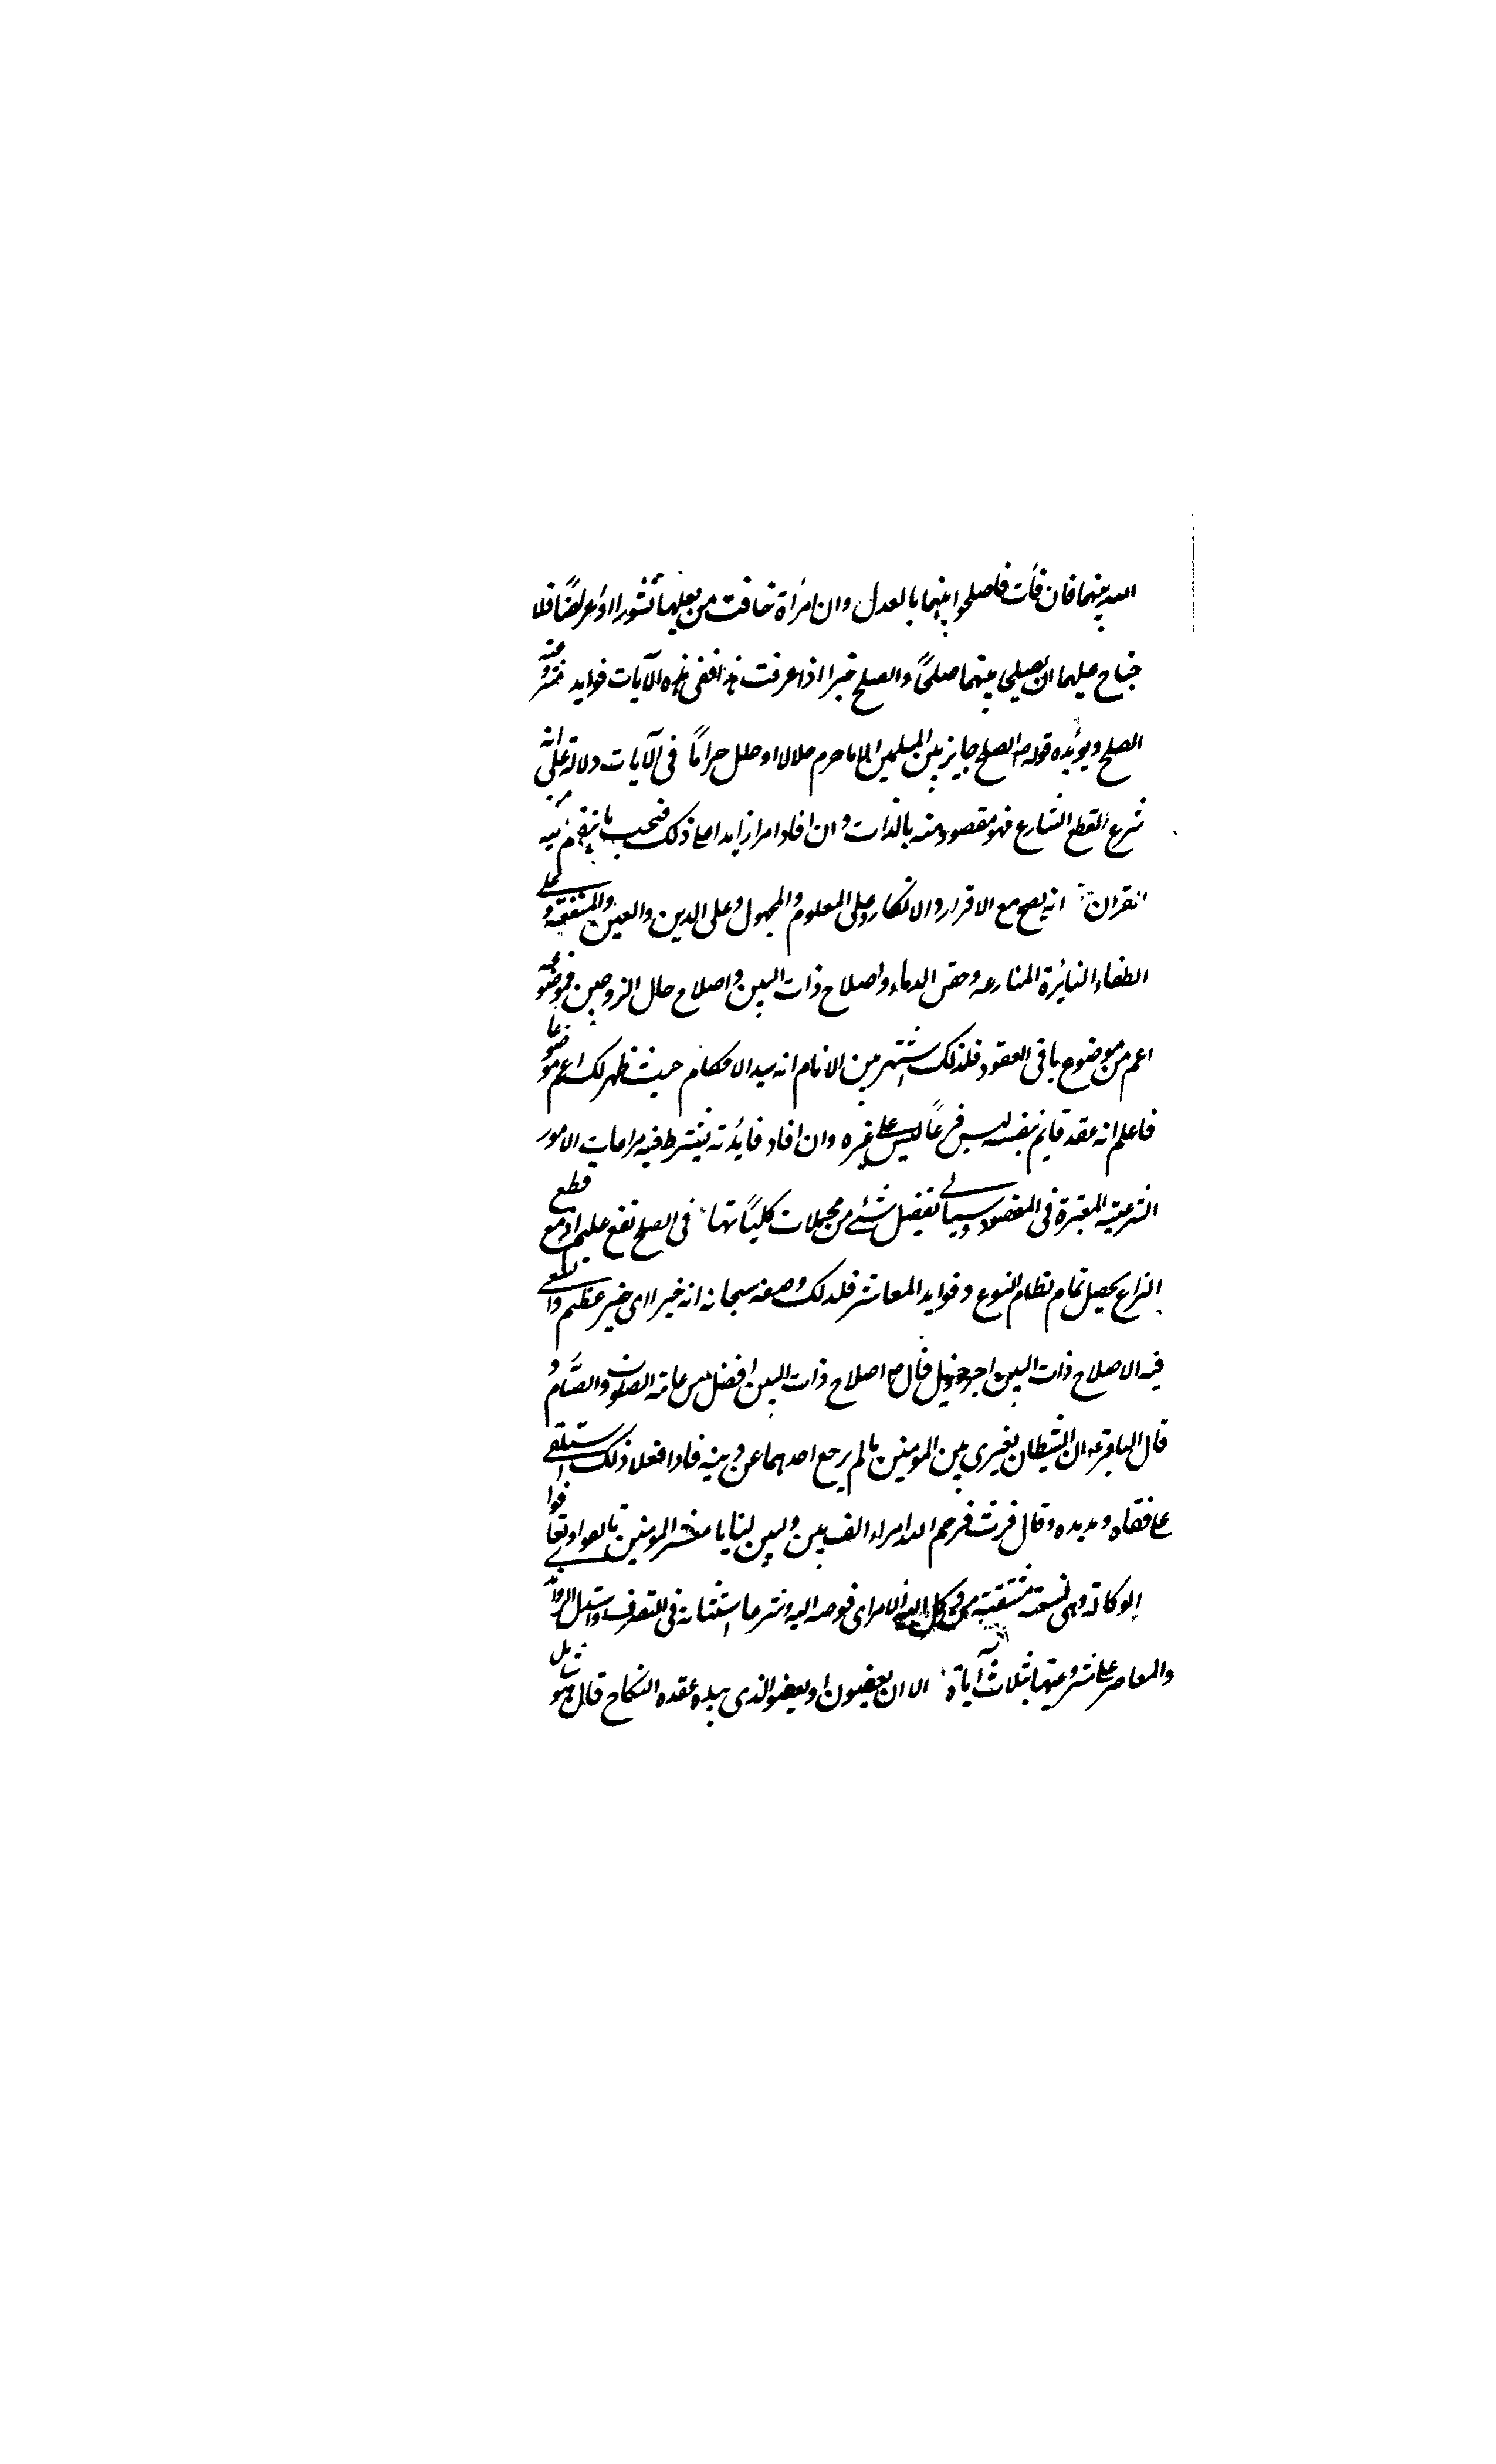 الله بينهما فان فأت فاصلحوا بينهما بالعدل وان امرأة خافت من بعلها نشورا او عراضًا فلا
جناح عليهما ان يصلحا بينهما صلحًا والصلح خير اذا عرفت هذا ففى هذه الآيات فوايد مشروعيته
الصلح ويؤيده قوله ص الصلح جايز بين المسلمين الا ما حرم حلالا او حلل حرامًا فى الآيات دلالة على انه
شرع لقطع التنازع فهو مقصود منه بالذات وان افاد امرا زايدا على ذلك
القران انه يصح مع الاقرار والانكار وعلى المعلوم والمجهول وعلى الدين والعين والمنفعة وعلى
اطفاء النائرة المنازعه وحقن الدماء واصلاح ذات البين واصلاح حال الزوجين فموضوعه
اعم من موضوع باقى العقود فلذلك اشتهر بين الانام انه سيد الاحكام حيث ظهر لك اعم موضوعا
فاعلم انه عقد قايم بنفسه ليس فرعًا ليس على غيره وان افاد فايدته يشترط فيه مراعات الامور
الشرعيه المعتبرة فى المقصود وسياتى تفصيل شئ من مجملات كلياتها فى الصلح نفع عليم اذ مع قطع
النزاع يحصل تمام نظام النوع وفوايد المعاشر فلذلك وصفه سبحانه انه خير اى خير عظيم
فيه الاصلاح ذات البين اجر جزيل قال ص اصلاح ذات البين افضل من عامة الصلوة والصيام و
قال الباقر ع ان الشيطان يغرى بين المومنين ما لم يرجع احدهما عن دينه فاذا فعلا ذلك استلقى
على فقاه ومد يده وقال فزت فرحم الله امراء الف بين وليين لنا يا معشر المومنين تالفوا وتعاطفوا
الوكالة وهى لغة مشتقة من وكل اليه الامر اى فوضه اليه وشرعا استنابة فى التصرف واستدل الراوند
والمعاصر على مشروعيتها بثلاث آياة الا ان يعفون او يعفو الذى بيده عقدة النكاح قال